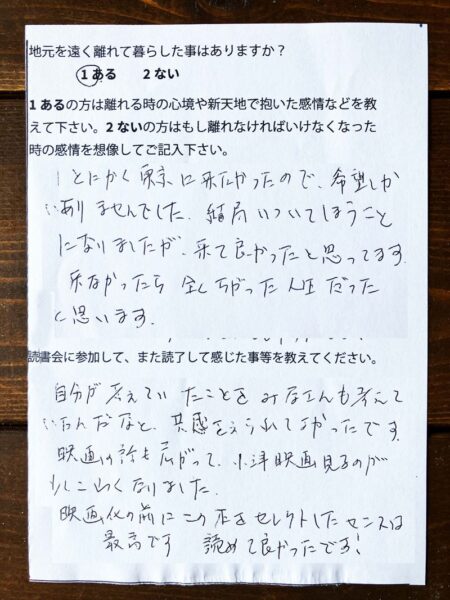 地元を遠く離れて暮らした事はありますか？
1 ある　2 ない
1 あるの方は離れる時の心境や新天地で抱いた感情などを教
えて下さい。2 ないの方はもし離れなければいけなくなった
時の感情を想像してご記入下さい。
とにかく東京に来たかったので、希望しか
ありませんでした。結局いついてしまうこと
になりましたが、来て良かったと思ってます。
来なかったら全くちがった人生だった
と思います。
読書会に参加して、また読了して感じた事等を教えてください。
自分が考えていたことをみなさんも考えて
いたんだなと、共感をえられてよかったです。
映画の話も広がって、小津映画見るのが
少しこわくなりました。
映画化の前にこの本をセレクトしたセンスは
最高です　読めて良かったです！